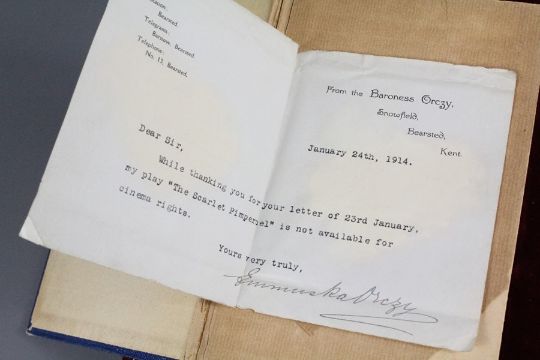 Station.
Bearsted.
Telegrams:
Baroness, Bearsted.
Telephone:
No. 13, Bearsted.
From the Baroness Orczy,
Snowfield,
Bearsted,
Kent.
January 24th, 1914.
Dear Sir,
While thanking you for your letter of 23rd January,
my play "The Scarlet Pimpernel" is not available for
cinema rights.
Yours very truly,
Emmuska Orczy